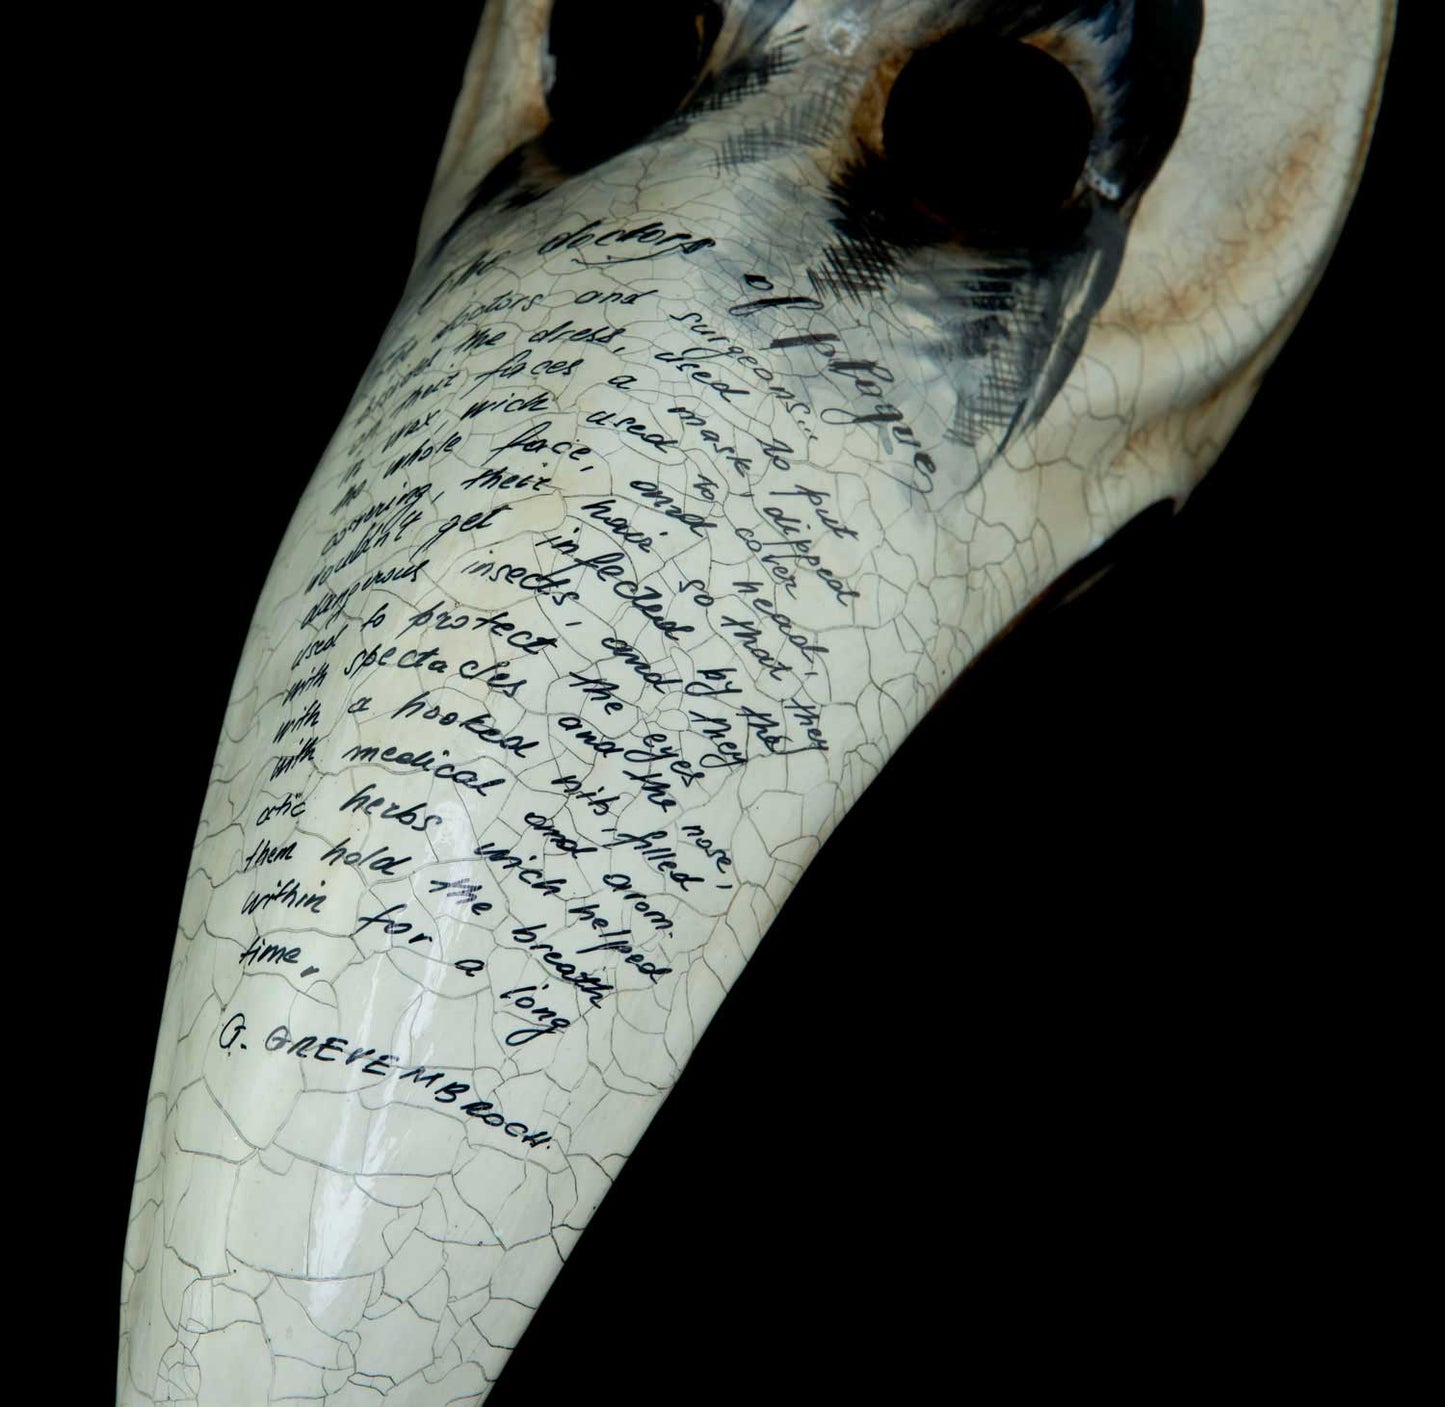 The doctors of plague
The doctors and surgeons...
besides the dress, used to put
on their faces a mask, dipped
in wax, wich used to cover
the whole face, and head,
covering, their hair so that they
wouldn't get infected by the
dangerous insects, and they
used to protect the eyes
with spectacles and the nose,
with a hooked nib, filled
with medical and arom-
atic herbs wich helped
them hold the breath
within for a long
time.
G. GREVEMBROCH.